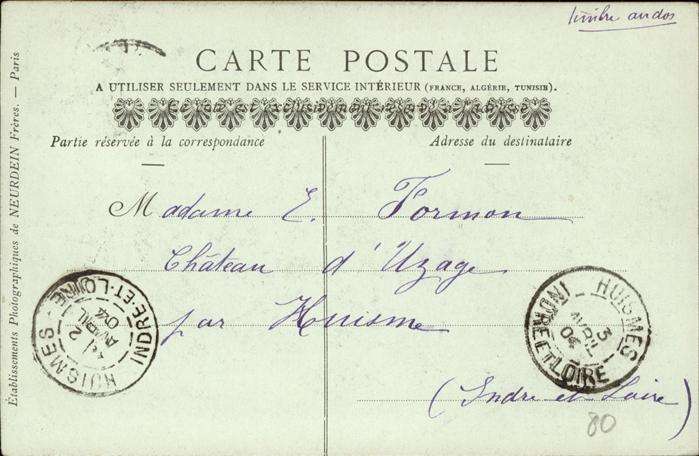 timbre au dos
CARTE POSTALE
A UTILISER SEULEMENT DANS LE SERVICE INTÉRIEUR (FRANCE, ALGÉRIE, TUNISIE).
Partie réservée à la correspondance
Adresse du destinataire
Madame E. Formon
Château d'Uzage
par Huisme
(Indre et Loire)
80
HUISMES
INDRE-ET-LOIRE
2
AVRIL
04
HUISMES
INDRE ET LOIRE
3
AVRIL
04
Établissements Photographiques de NEURDEIN Frères. — Paris